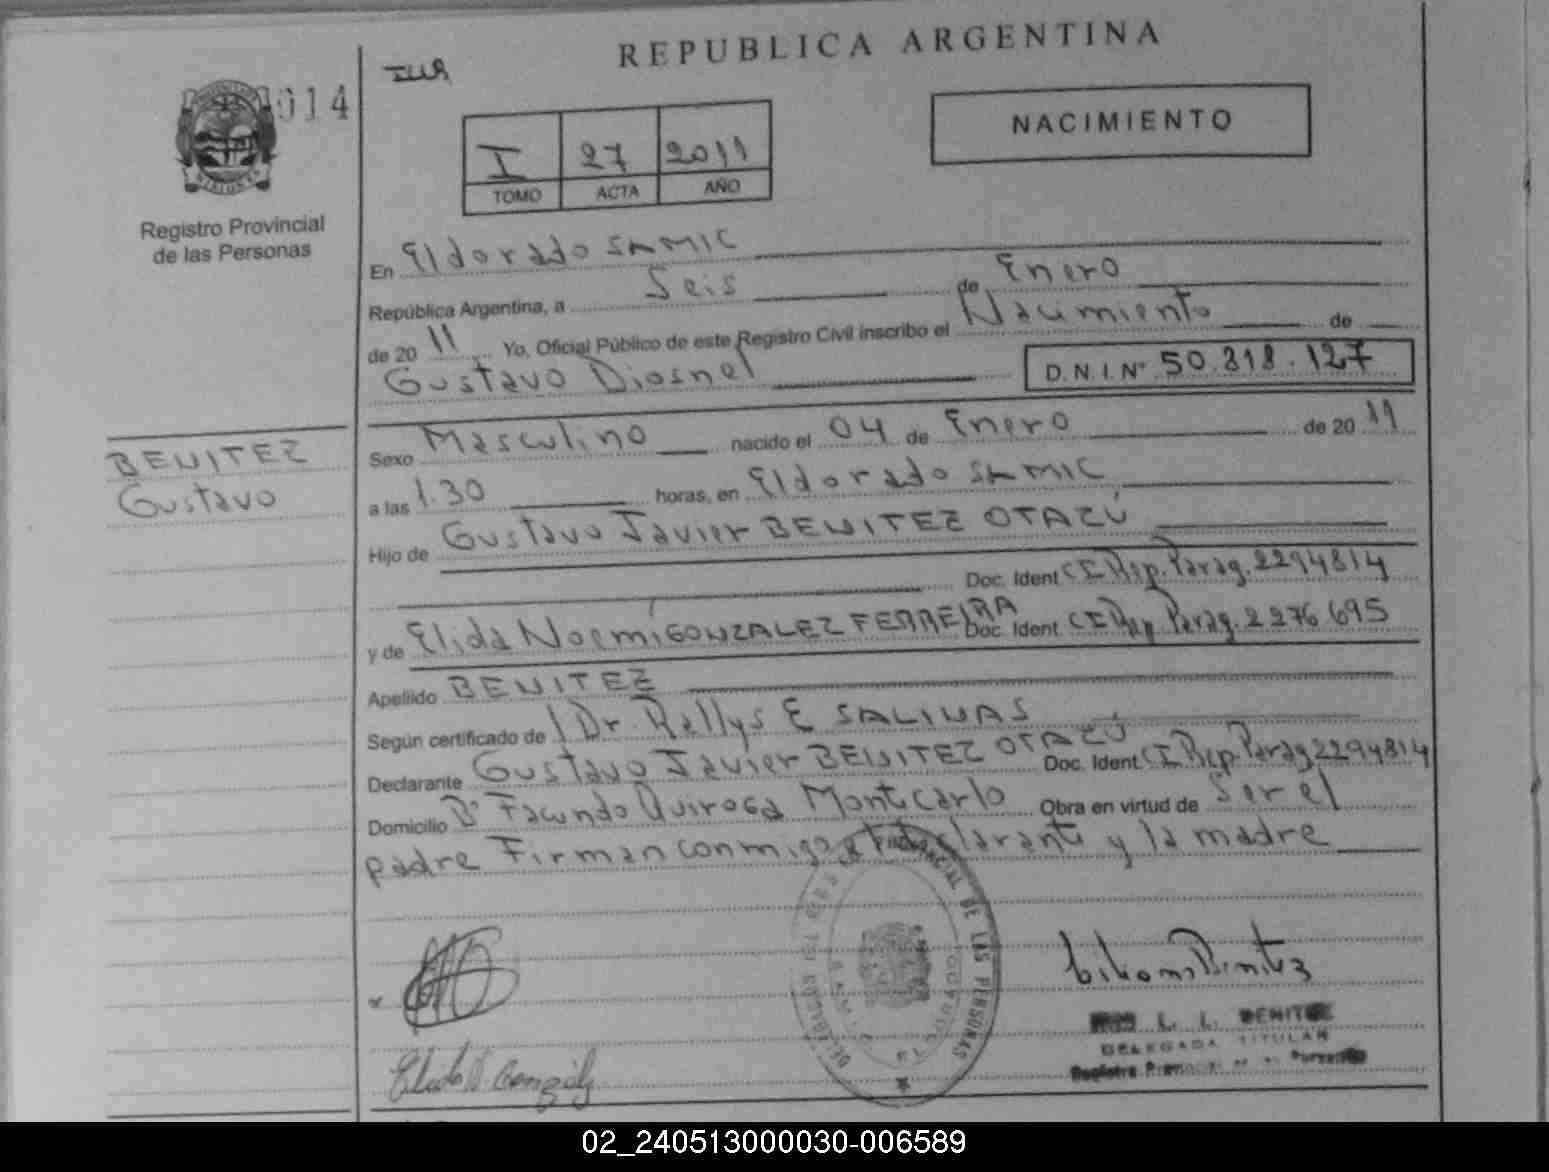 REPUBLICA ARGENTINA
014
NACIMIENTO
I 27 2011
TOMO ACTA AÑO
Registro Provincial
de las Personas
En Eldorado SAMIC
República Argentina, a Seis de Enero
de 20 11 Yo, Oficial Público de este Registro Civil inscribo el Nacimiento de
Gustavo Diosnel D.N.I. Nº 50.818.127
BENITEZ
Gustavo
Sexo Masculino nacido el 04 de Enero de 20 11
a las 1.30 horas, en Eldorado SAMIC
Hijo de Gustavo Javier BENITEZ OTAZÚ
Doc. Ident CI Rep. Parag. 2294814
y de Elida Noemí GONZALEZ FERREIRA Doc. Ident. CI Rep Parag. 2276695
Apellido BENITEZ
Según certificado de Dr. Rellys E SALINAS
Declarante Gustavo Javier BENITEZ OTAZÚ Doc. Ident. CI Rep. Parag 2294814
Domicilio Bº Facundo Quiroga Montecarlo Obra en virtud de Ser el
padre Firman conmigo el declarante y la madre
DE LAS PERSONAS
L. L. BENITEZ
DELEGADA TITULAR
Registro Provincial de las Personas
02_240513000030-006589